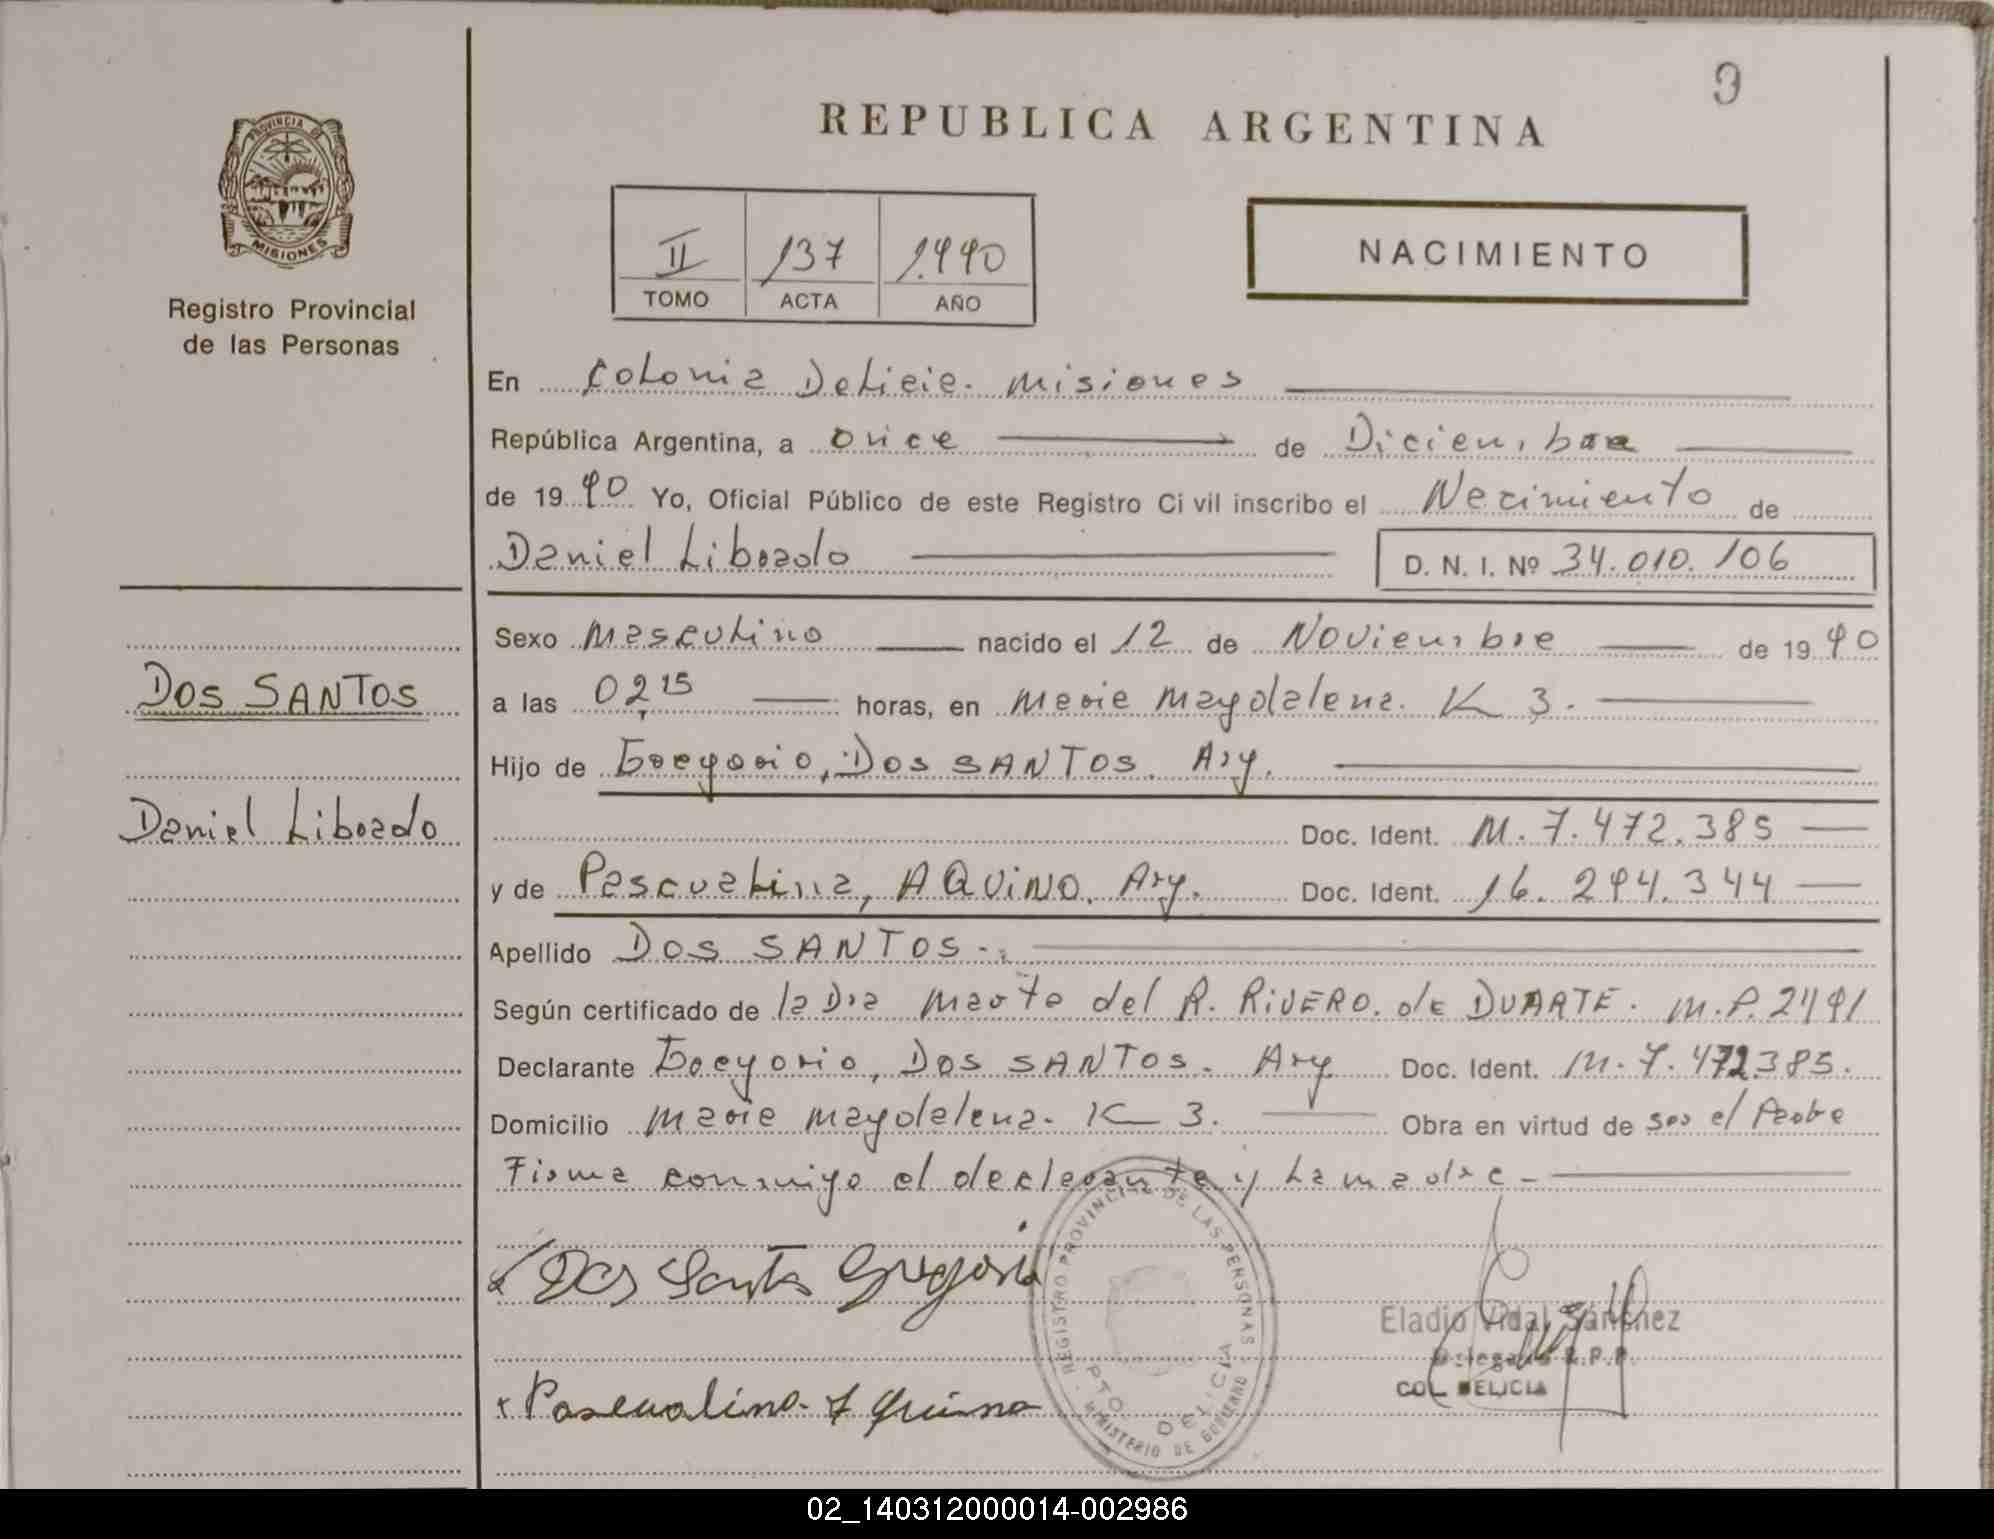 9
REPUBLICA ARGENTINA
PROVINCIA DE
MISIONES
Registro Provincial
de las Personas
II 137 1.990
TOMO ACTA AÑO
NACIMIENTO
En Colonia Delicia. Misiones
República Argentina, a once de Diciembre
de 1990 Yo, Oficial Público de este Registro Civil inscribo el Nacimiento de
Daniel Libordo D. N. I. Nº 34.010.106
Sexo Masculino nacido el 12 de Noviembre de 1990
DOS SANTOS
a las 02,15 horas, en Maria Magdalena. K 3.
Hijo de Gregorio, DOS SANTOS. Arg.
Daniel Libordo
Doc. Ident. M. 7.472.385
y de Pascualina, AQUINO. Arg. Doc. Ident. 16.294.344
Apellido DOS SANTOS.
Según certificado de la Dra Marta del R. RIVERO. de DUARTE. M.P. 2491
Declarante Gregorio, DOS SANTOS. Arg Doc. Ident. M. 7.472.385.
Domicilio Maria Magdalena. K 3. Obra en virtud de ser el Padre
Firma conmigo el declarante y la madre
x Dos Santos Gregorio
REGISTRO PROVINCIAL DE LAS PERSONAS
MINISTERIO DE GOBIERNO
PTO. DELICIA
Eladio Vidal Sánchez
Delegado R.P.P.
COL. DELICIA
x Pascualina Aquino
02_140312000014-002986